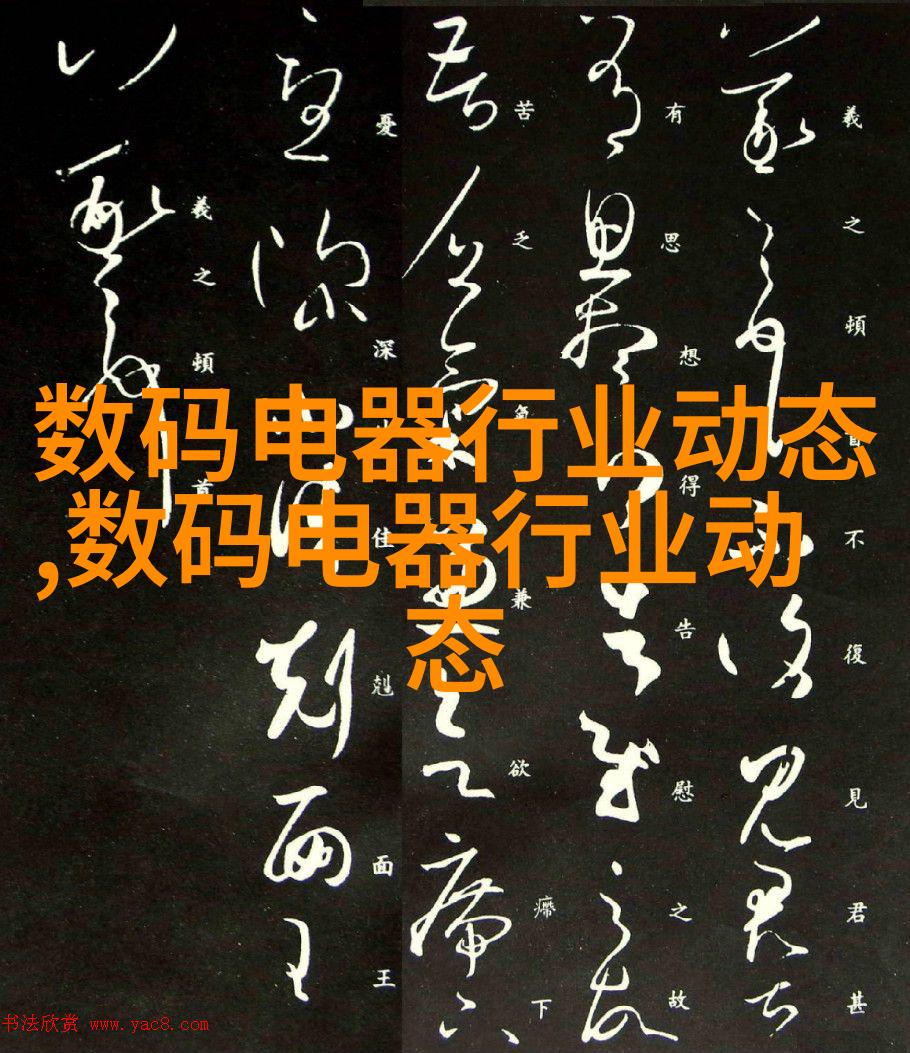 数码电器行业动态
,数码电器行业动
态
羲之頓首不復見君甚
有思想得告慰之故
苦乏氣兼欲㿃下
憂深佳剋面王
羲之頓首
书法欣赏 www.yac8.com